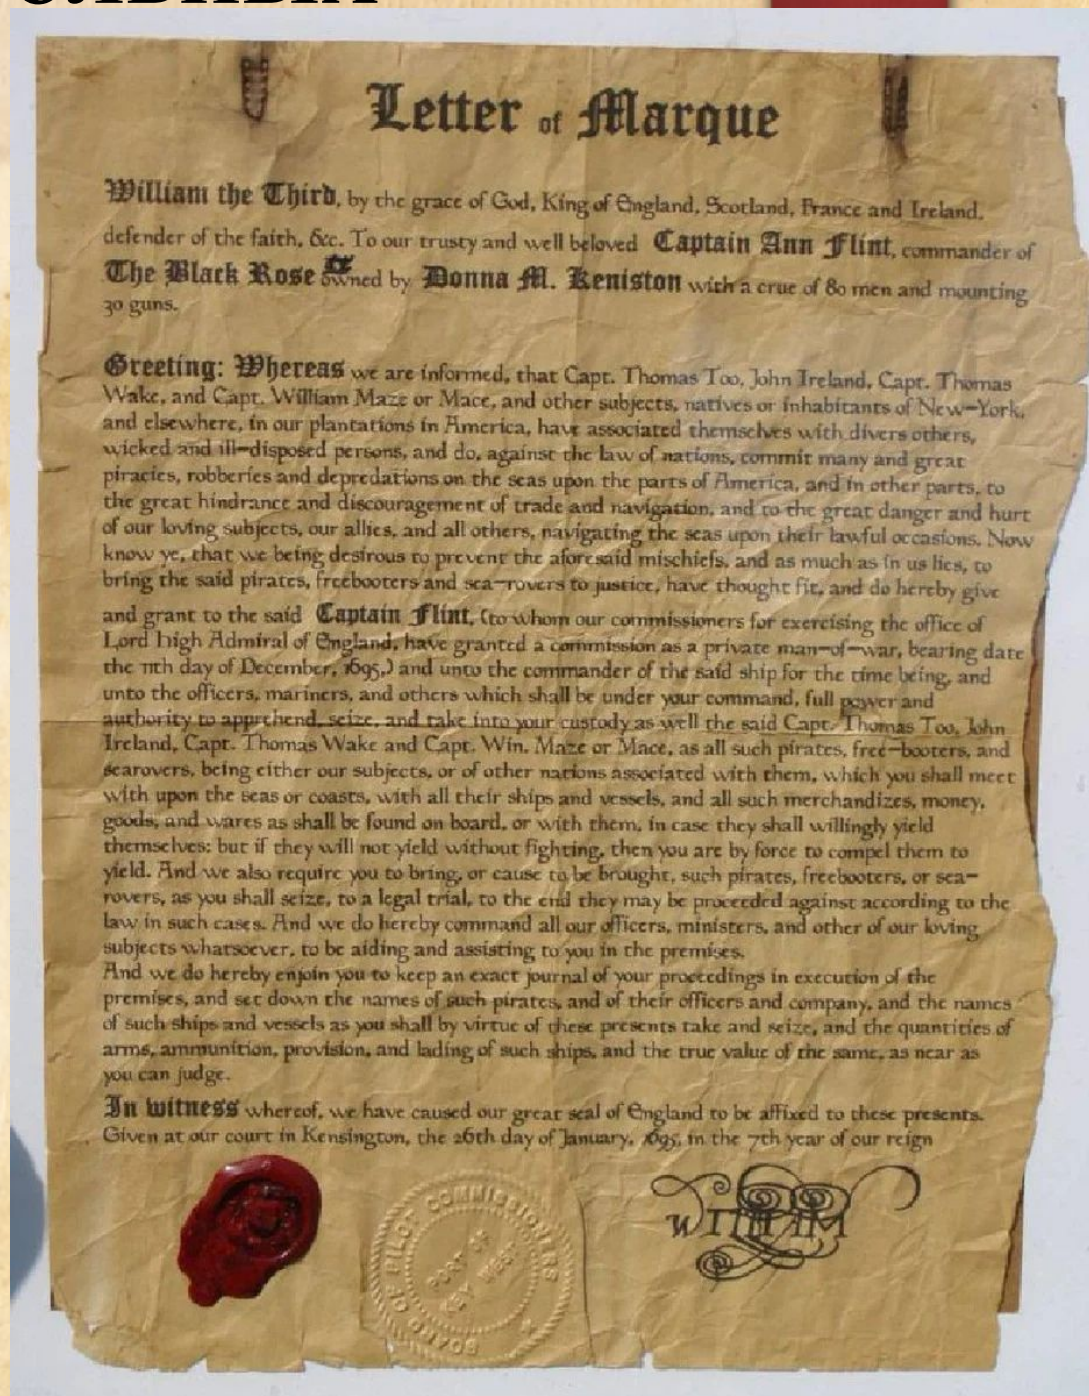 Letter of Marque
William the Third, by the grace of God, King of England, Scotland, France and Ireland,
defender of the faith, &c. To our trusty and well beloved Captain Ann Flint, commander of
The Black Rose owned by Donna M. Keniston with a crue of 80 men and mounting
30 guns.
Greeting: Whereas we are informed, that Capt. Thomas Too, John Ireland, Capt. Thomas
Wake, and Capt. William Maze or Mace, and other subjects, natives or inhabitants of New-York,
and elsewhere, in our plantations in America, have associated themselves with divers others,
wicked and ill-disposed persons, and do, against the law of nations, commit many and great
piracies, robberies and depredations on the seas upon the parts of America, and in other parts, to
the great hindrance and discouragement of trade and navigation, and to the great danger and hurt
of our loving subjects, our allies, and all others, navigating the seas upon their lawful occasions. Now
know ye, that we being desirous to prevent the aforesaid mischiefs, and as much as in us lies, to
bring the said pirates, freebooters and sea-rovers to justice, have thought fit, and do hereby give
and grant to the said Captain Flint, (to whom our commissioners for exercising the office of
Lord high Admiral of England, have granted a commission as a private man-of-war, bearing date
the 11th day of December, 1695,) and unto the commander of the said ship for the time being, and
unto the officers, mariners, and others which shall be under your command, full power and
authority to apprehend, seize, and take into your custody as well the said Capt. Thomas Too, John
Ireland, Capt. Thomas Wake and Capt. Win. Maze or Mace, as all such pirates, free-booters, and
searovers, being either our subjects, or of other nations associated with them, which you shall meet
with upon the seas or coasts, with all their ships and vessels, and all such merchandizes, money,
goods, and wares as shall be found on board, or with them, in case they shall willingly yield
themselves: but if they will not yield without fighting, then you are by force to compel them to
yield. And we also require you to bring, or cause to be brought, such pirates, freebooters, or sea-
rovers, as you shall seize, to a legal trial, to the end they may be proceeded against according to the
law in such cases. And we do hereby command all our officers, ministers, and other of our loving
subjects whatsoever, to be aiding and assisting to you in the premises.
And we do hereby enjoin you to keep an exact journal of your proceedings in execution of the
premises, and set down the names of such pirates, and of their officers and company, and the names
of such ships and vessels as you shall by virtue of these presents take and seize, and the quantities of
arms, ammunition, provision, and lading of such ships, and the true value of the same, as near as
you can judge.
In witness whereof, we have caused our great seal of England to be affixed to these presents.
Given at our court in Kensington, the 26th day of January, 1695, in the 7th year of our reign
BOARD OF PILOT COMMISSIONERS
PORT OF
KEY WEST
WILLIAM